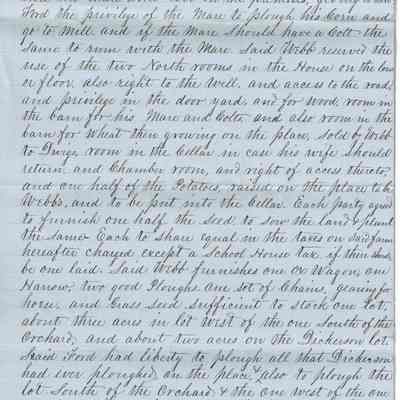 Ford the privilege of the Mare to plough his Corn and
go to Mill and if the Mare Should have a Colt the
Same to run with the Mare. Said Webb reserved the
use of the two North rooms in the House on the low
er floor, also right to the well, and access to the road,
and privilege in the door yard, and for wood, room in
the barn for his Mare and Colts, and also room in the
barn for wheat then growing on the place, Sold by Webb
to room in the Cellar in case his wife Should
return, and Chamber room, and right of access thereto,
and one half of the Potatoes, raised on the place to be
Webbs, and to be put into the Cellar. Each party agreed
to furnish one half the Seed to Sow the land & plant
the Same Each to Share equal in the taxes on Said farm
hereafter charged except a School House tax if there Should
be one laid. Said Webb furnishes one Ox Wagon, one
Harrow, two good Ploughs one Set of Chains, gearing for
horse, and Grass Seed Sufficient to Stock one lot,
about three acres in lot West of the one South of the
Orchard, and about two acres on the Dickerson lot.
Said Ford had liberty to plough all that Dickerson
had ever ploughed on the place, & also to plough the
lot South of the Orchard & the one west of the one